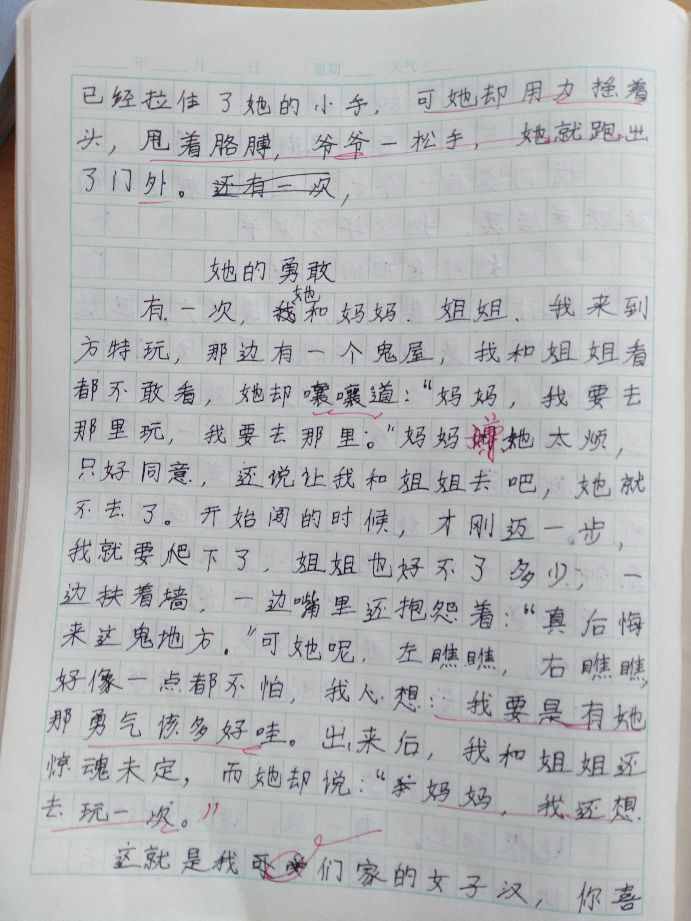 已经拉住了她的小手，可她却用力摇着
头，甩着胳膊，爷爷一松手，她就跑出
了门外。还有一次，
她的勇敢
有一次，她和妈妈、姐姐、我来到
方特玩，那边有一个鬼屋，我和姐姐看
都不敢看，她却嚷嚷道：“妈妈，我要去
那里玩，我要去那里。”妈妈嫌她太烦，
只好同意，还说让我和姐姐去吧，她就
不去了。开始闯的时候，才刚迈一步，
我就要爬下了，姐姐也好不了多少，一
边扶着墙，一边嘴里还抱怨着：“真后悔
来这鬼地方。”可她呢，左瞧瞧，右瞧瞧，
好像一点都不怕，我心想：我要是有她
那勇气该多好哇。出来后，我和姐姐还
惊魂未定，而她却说：“妈妈，我还想
去玩一次。”
这就是我们家的女子汉，你喜